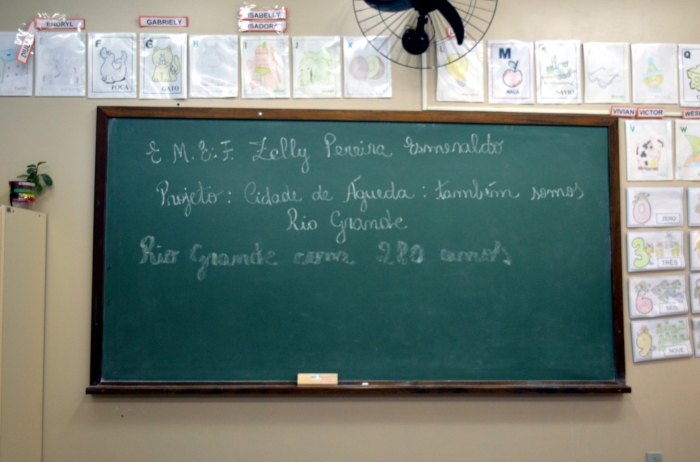 ENDRYL
GABRIELY
ISABELLY
ISADORA
F
FOCA
G
GATO
I
J
M
MAÇÃ
NAVIO
Q
VIVIAN VICTOR
V
W
ZERO
3
TRÊS
6
SEIS
9
NOVE
E. M. E. F. Zelly Pereira Esmeraldo
Projeto: Cidade de Águeda: também somos
Rio Grande
Rio Grande com 280 anos